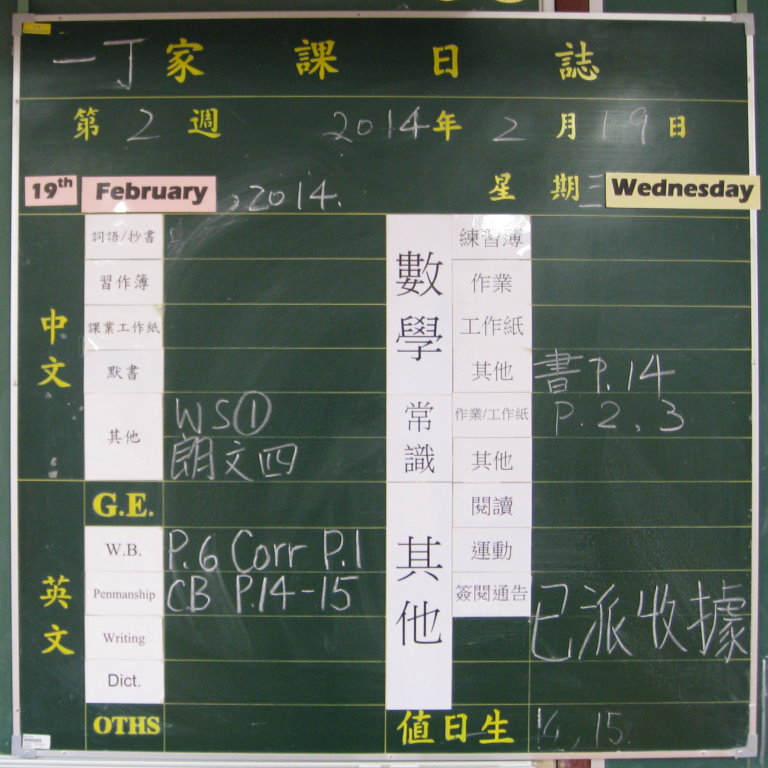 一丁家課日誌
第2週 2014年2月19日
19th February, 2014. 星期三 Wednesday
中文
詞語/抄書
習作簿
課業工作紙
默書
其他 WS①
朗文四
英文
G.E.
W.B. P.6 Corr P.1
Penmanship CB P.14-15
Writing
Dict.
OTHS
數學
練習簿
作業
工作紙
其他 書P.14
常識
作業/工作紙 P.2,3
其他
其他
閱讀
運動
簽閱通告 已派收據
值日生 14,15